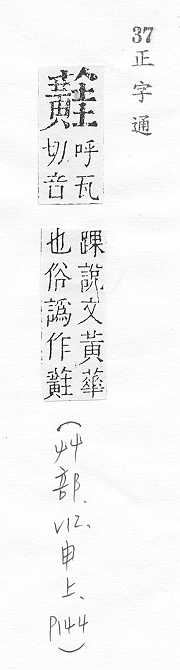 37正字通
蘳
呼瓦
切音
踝說文黃華
也俗譌作黊
(艸部、V12、申上、P144)